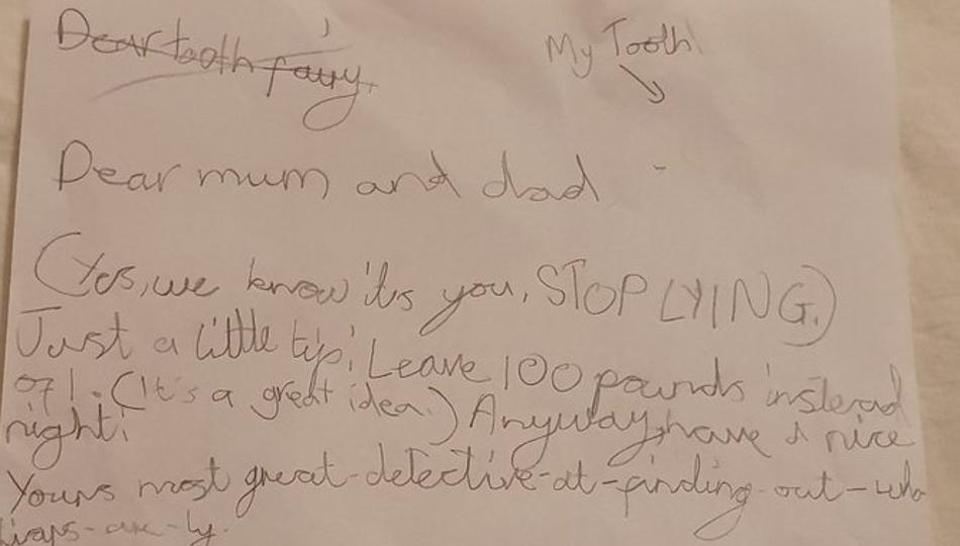 Dear tooth fairy,
My Tooth!
Dear mum and dad
(Yes, we know it's you, STOP LYING.)
Just a little tip: Leave 100 pounds instead
of 1. (It's a great idea.) Anyway, have a nice
night!
Yours most great-detective-at-finding-out-who
liars-are-ly.